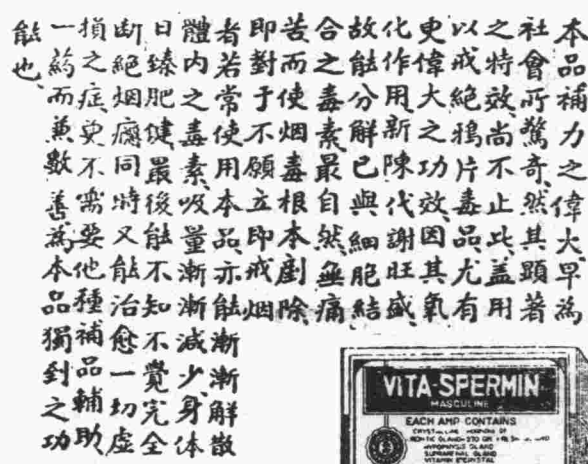 本品補力之偉大、早為
社會所驚奇、然其顕著
之特效、尚不止此、蓋用
以戒絕鴉片毒品、尤有
更偉大之功效、因其氧
化作用、新陳代謝旺盛、
故能分解已與細胞結
合之毒素、最自然、無痛
苦而使烟毒根本剷除、
即對于不願立即戒烟
者若常使用本品、亦能漸漸解散
體內之毒素、吸量漸漸減少、身体
日臻肥健、最後能不知不覺完全
断絕烟癮同時又能治愈一切虛
損之症、更不需要他種補品輔助、
一葯而兼數善為本品獨到之功
能也、
VITA-SPERMIN
MASCULINE
EACH AMP CONTAINS
HYPOPHYSIS GLAND
SUPRARENAL GLAND